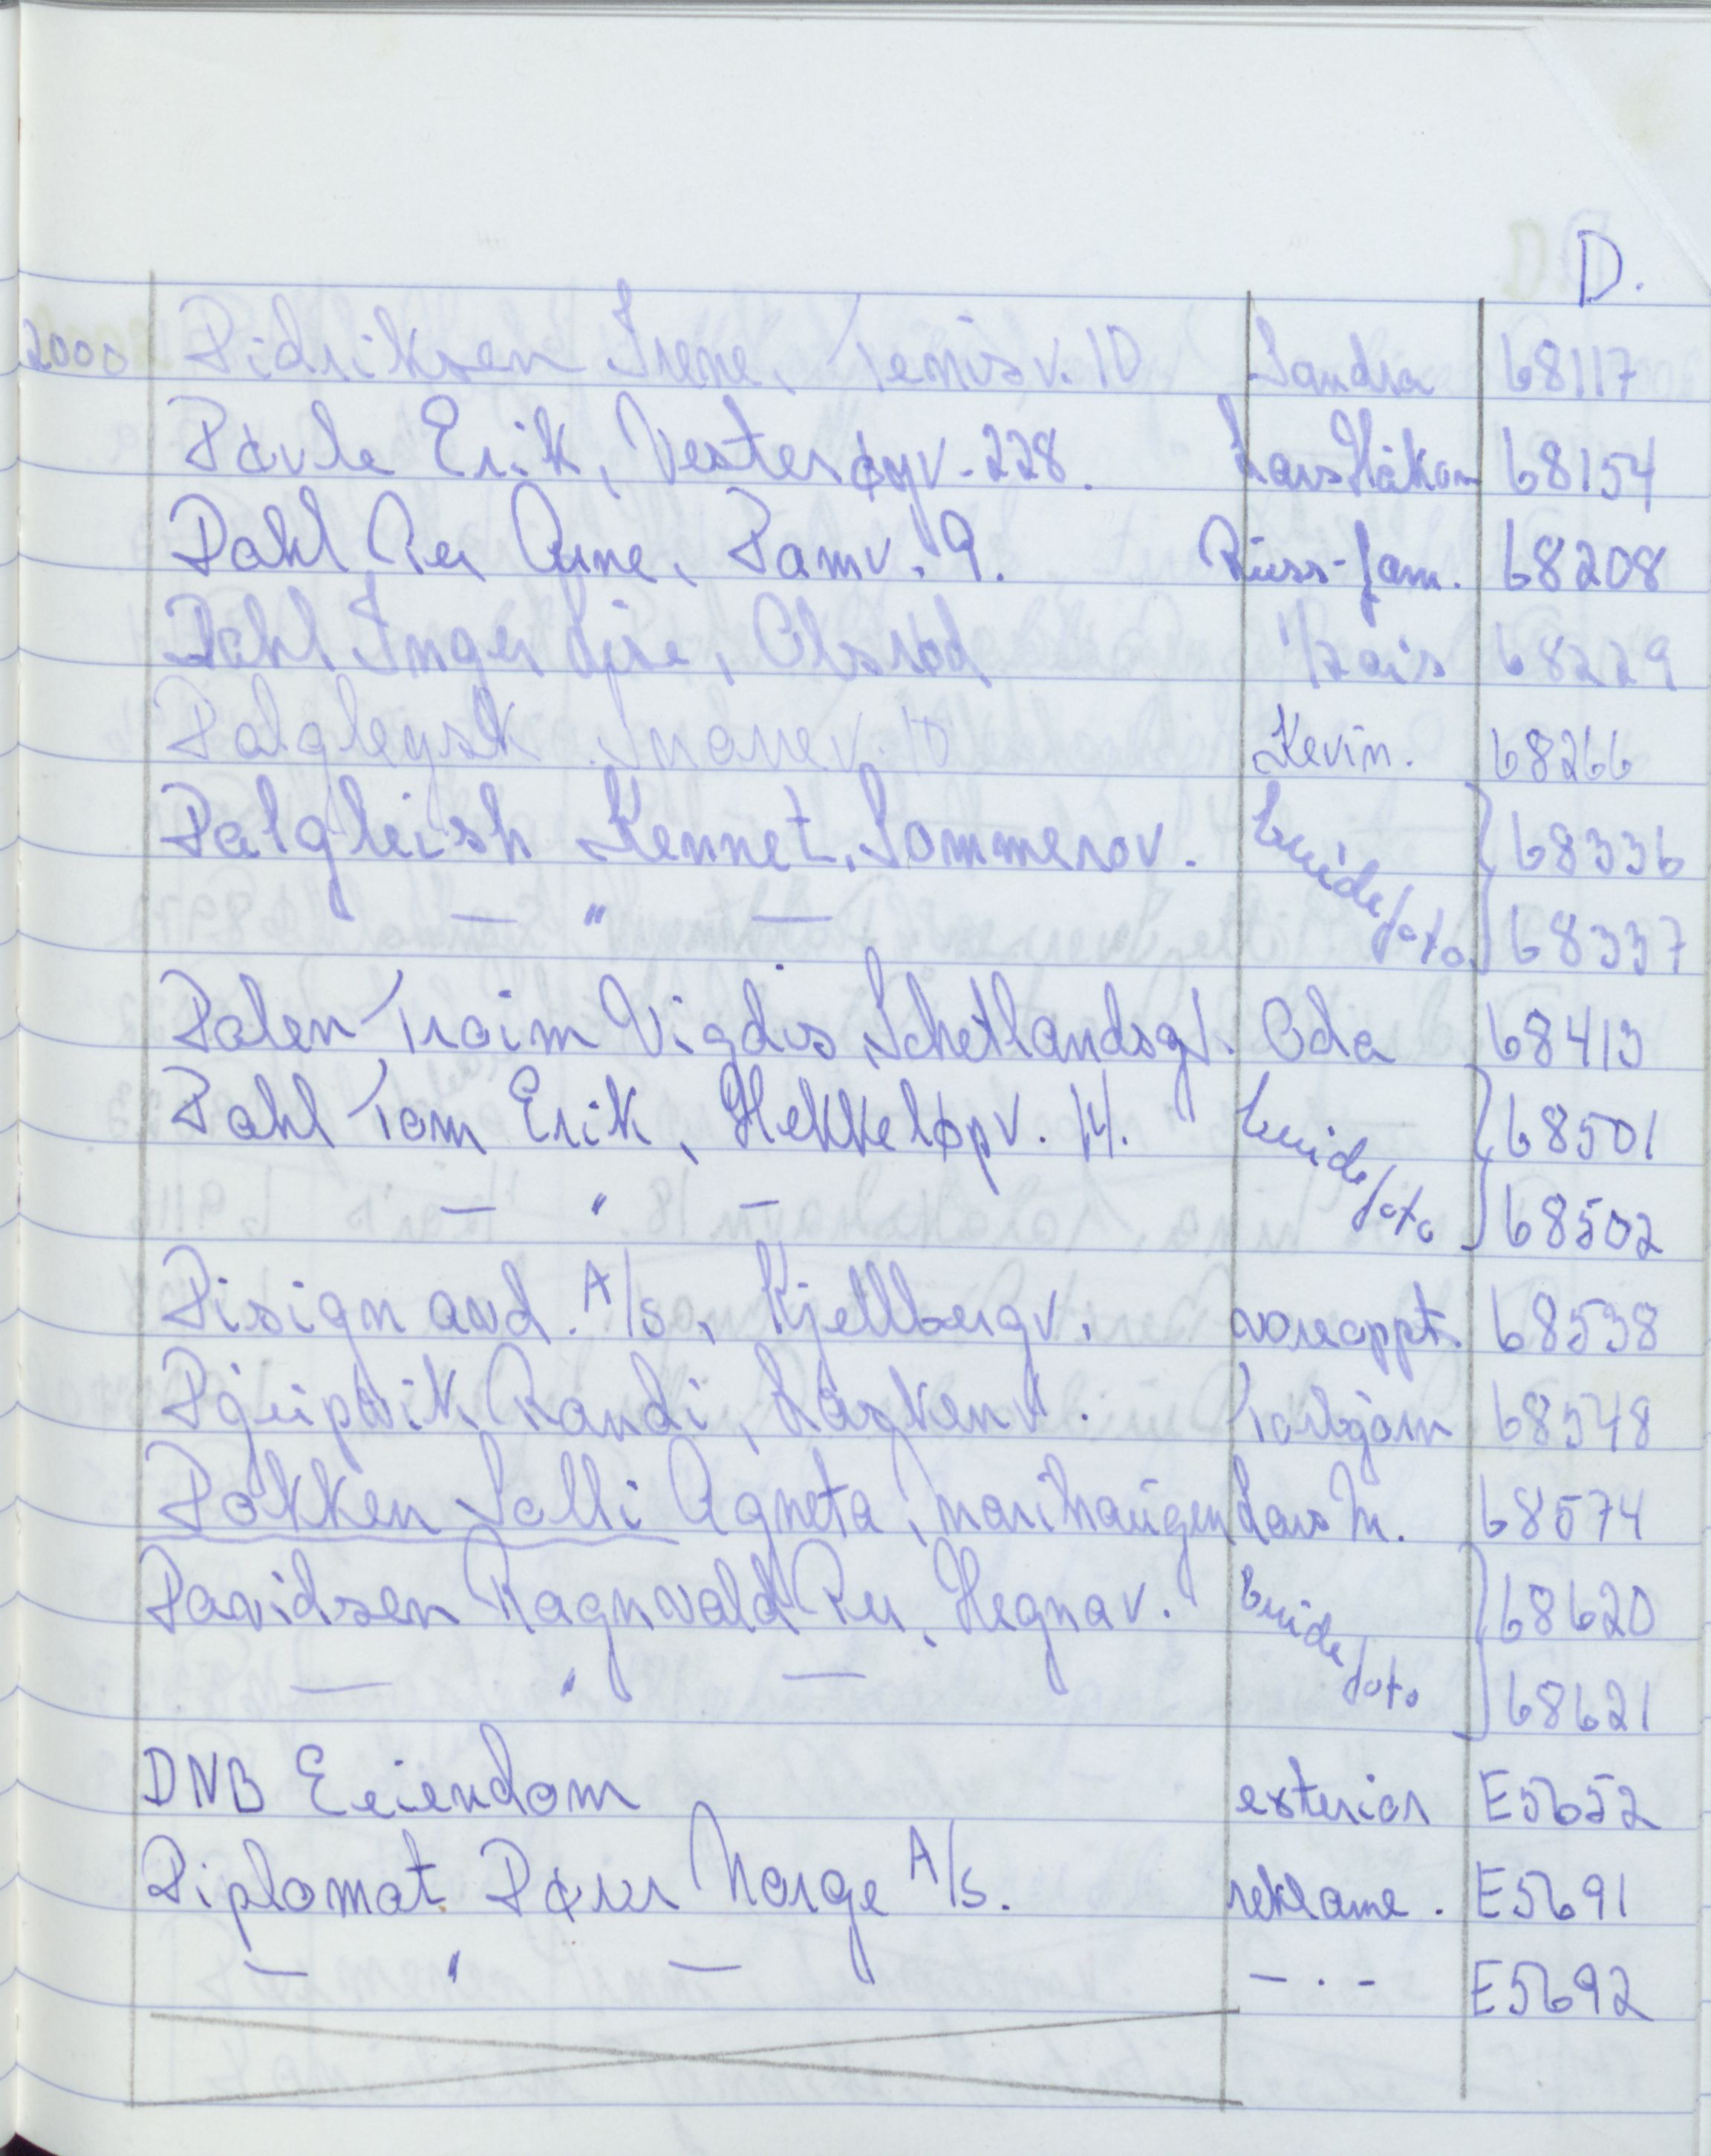 D.
2000 Didriksen Irene, Tenisv. 10 Sandra 68117
Døvle Erik, Vesterøyv. 228. Lars Håkon 68154
Dahl Per Arne, Damv. 9. Russ-fam. 68208
Dahl Inger Lise, Olsrød 1/2 års 68229
Dalgleysk 10 Kevin. 68266
Dalgleish Kennet, Sommerov. brude 68336
— " — foto. 68337
Dalen Troim Vigdis, Schetlandsgt. Oda 68413
Dahl Tom Erik, Hekkeløpv. 14. brude 68501
— " — foto 68502
Disign and. A/s, Kjellbergv. vareoppt. 68538
Randi, Torbjørn 68548
Dokken Solli Agneta, Marihaugen Lars M. 68574
Davidsen Ragnvald Per, Hegnav. brude 68620
— " — foto 68621
DNB Eeiendom exteriør E5652
Diplomat Dører Norge A/s. reklame. E5691
— " — — . - E5692